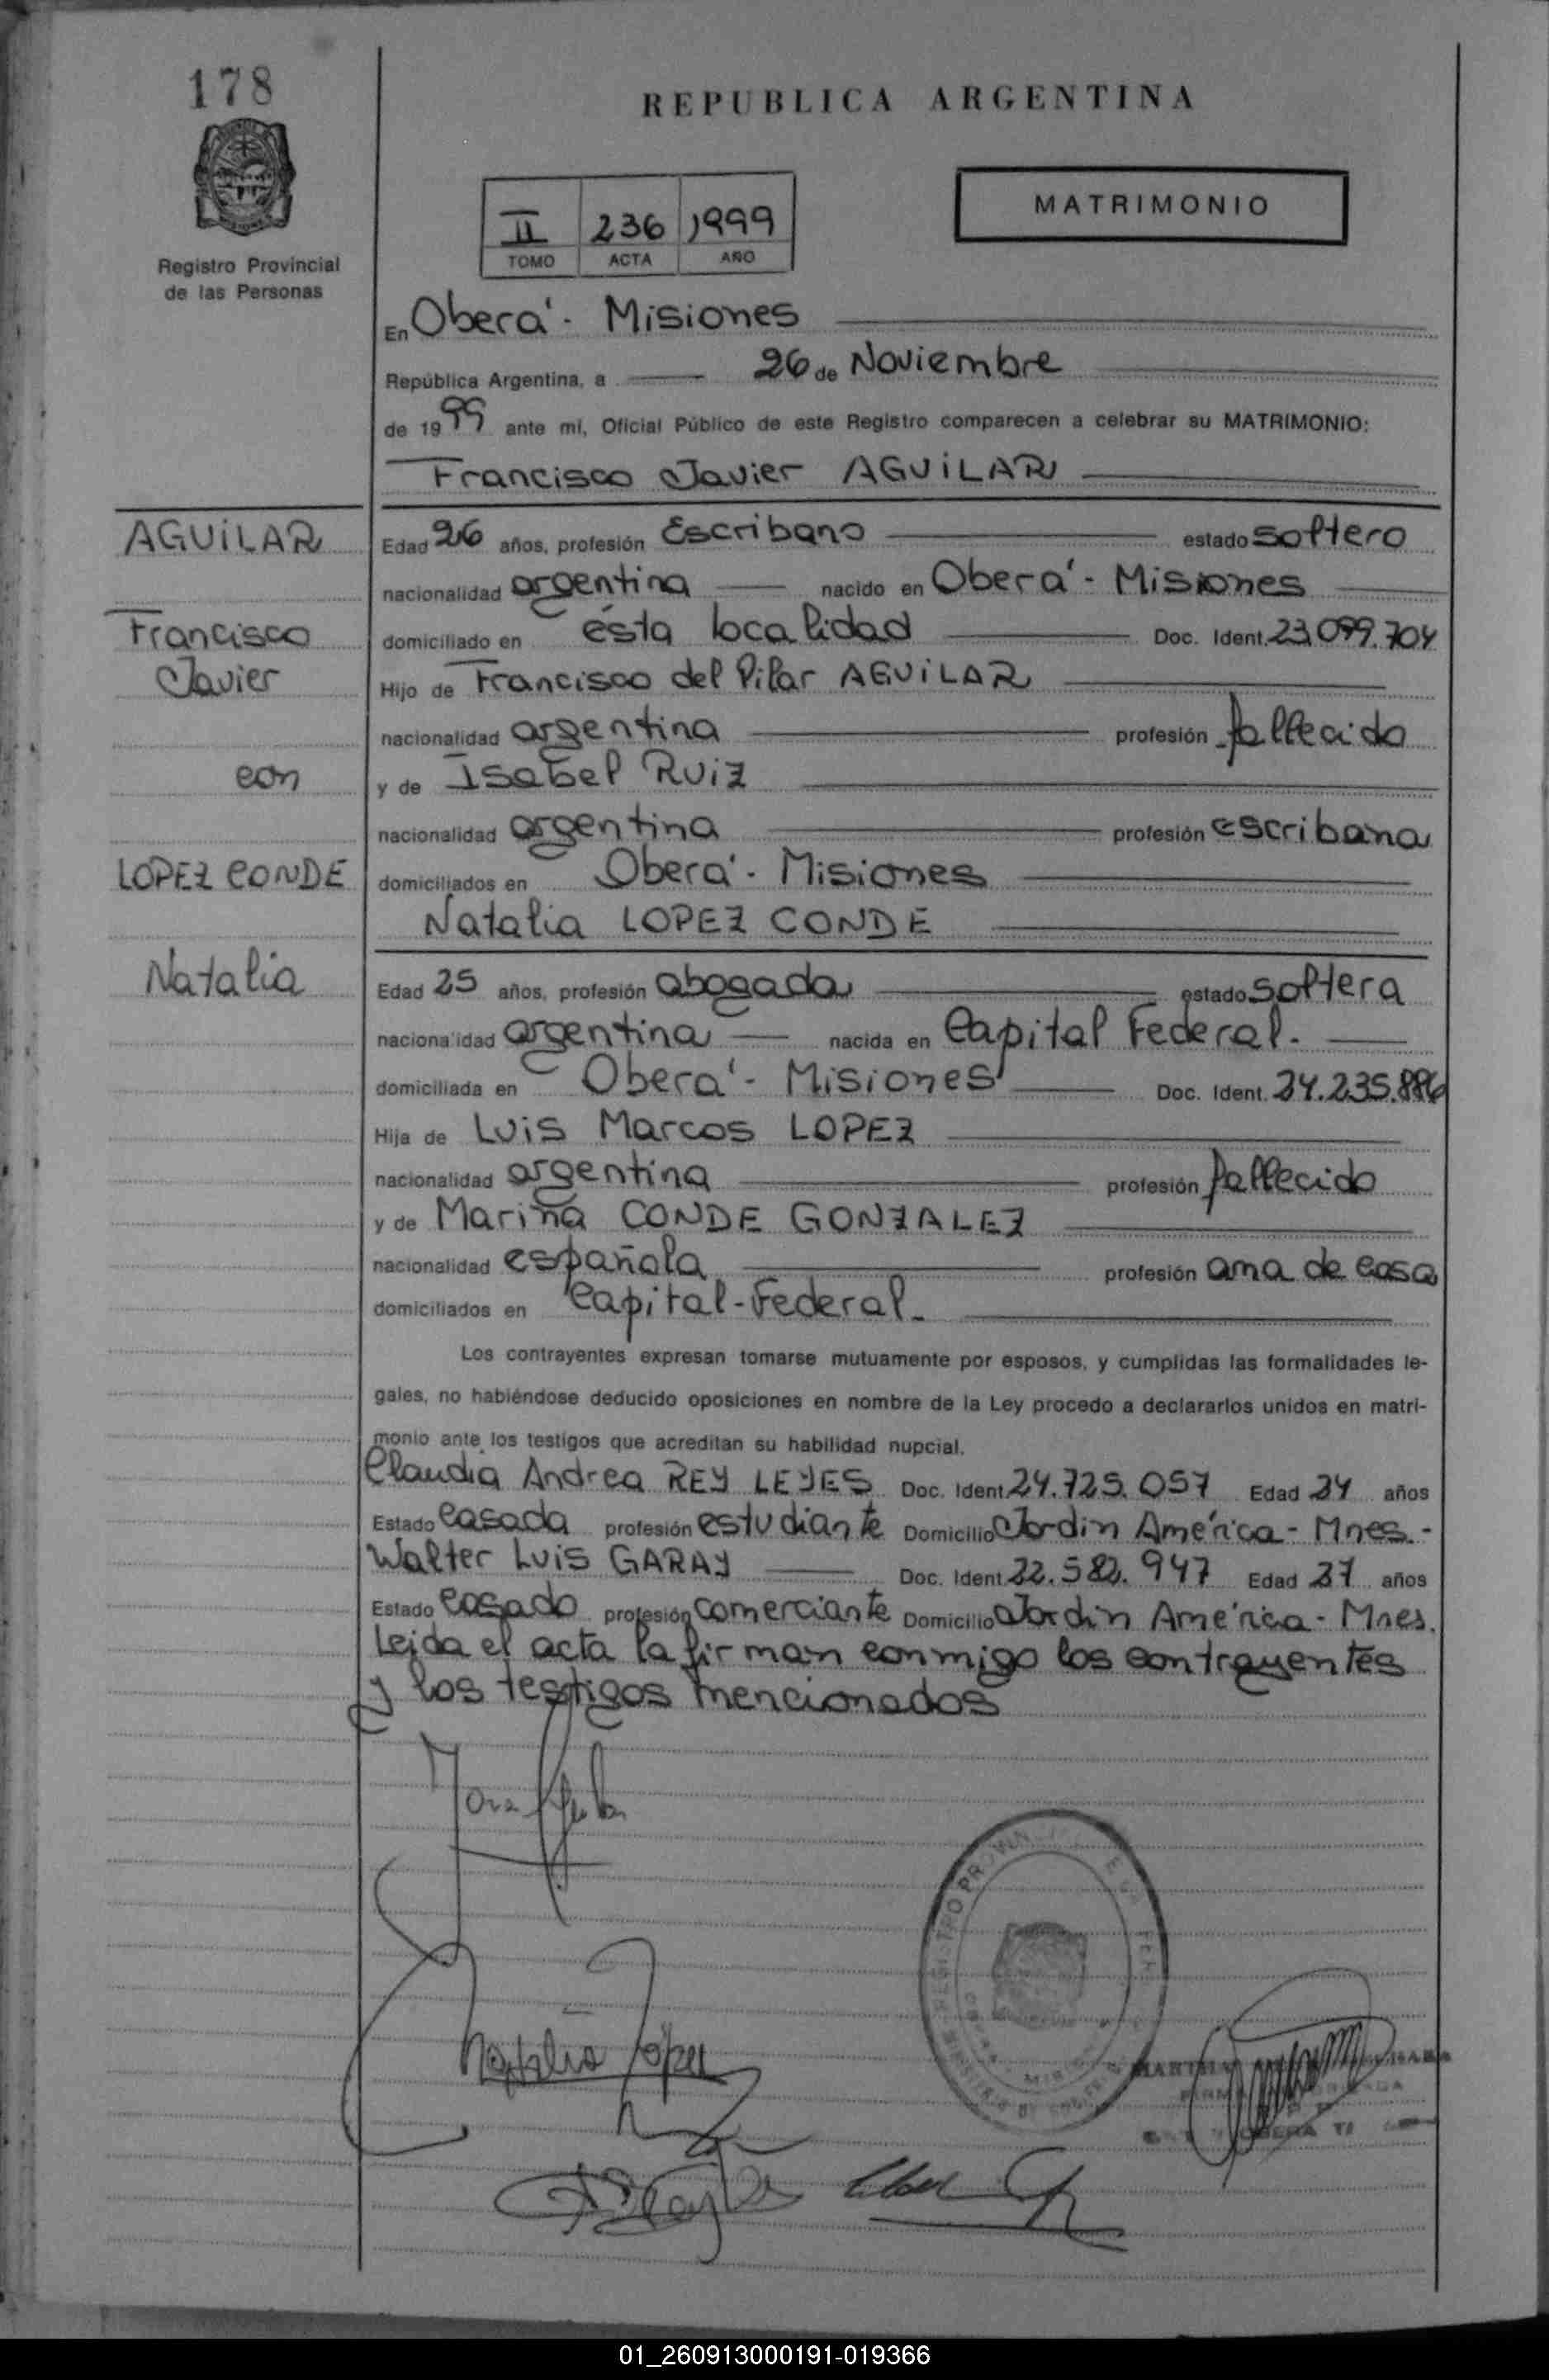 178
REPUBLICA ARGENTINA
MATRIMONIO
II 236 1999
TOMO ACTA AÑO
Registro Provincial
de las Personas
En Oberá - Misiones
República Argentina, a 26 de Noviembre
de 1999 ante mí, Oficial Público de este Registro comparecen a celebrar su MATRIMONIO:
Francisco Javier AGUILAR
AGUILAR
Edad 26 años, profesión Escribano estado soltero
nacionalidad argentina nacido en Oberá - Misiones
Francisco
domiciliado en ésta localidad Doc. Ident. 23.099.704
Javier
Hijo de Francisco del Pilar AGUILAR
nacionalidad argentina profesión fallecido
con
y de Isabel RUIZ
nacionalidad argentina profesión escribana
LOPEZ CONDE
domiciliados en Oberá - Misiones
Natalia LOPEZ CONDE
Natalia
Edad 25 años, profesión abogada estado soltera
nacionalidad argentina nacida en Capital Federal.
domiciliada en Oberá - Misiones Doc. Ident. 24.235.886
Hija de Luis Marcos LOPEZ
nacionalidad argentina profesión fallecido
y de Marina CONDE GONZALEZ
nacionalidad española profesión ama de casa
domiciliados en Capital-Federal.
Los contrayentes expresan tomarse mutuamente por esposos, y cumplidas las formalidades le-
gales, no habiéndose deducido oposiciones en nombre de la Ley procedo a declararlos unidos en matri-
monio ante los testigos que acreditan su habilidad nupcial.
Claudia Andrea REY LEYES Doc. Ident. 24.725.057 Edad 24 años
Estado casada profesión estudiante Domicilio Jardín América - Mnes.-
Walter Luis GARAY Doc. Ident. 22.582.947 Edad 27 años
Estado casado profesión comerciante Domicilio Jardín América - Mnes.
Leida el acta la firman conmigo los contrayentes
y los testigos mencionados
Natalia López
01_260913000191-019366